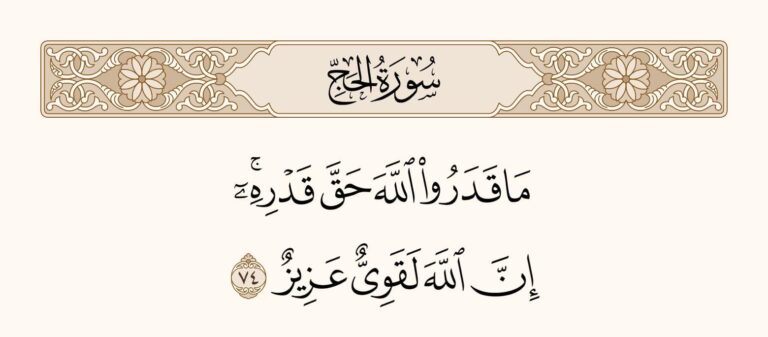 سُورَةُ الحَجِّ
مَا قَدَرُوا۟ ٱللَّهَ حَقَّ قَدْرِهِۦٓ ۚ
إِنَّ ٱللَّهَ لَقَوِىٌّ عَزِيزٌ ٧٤